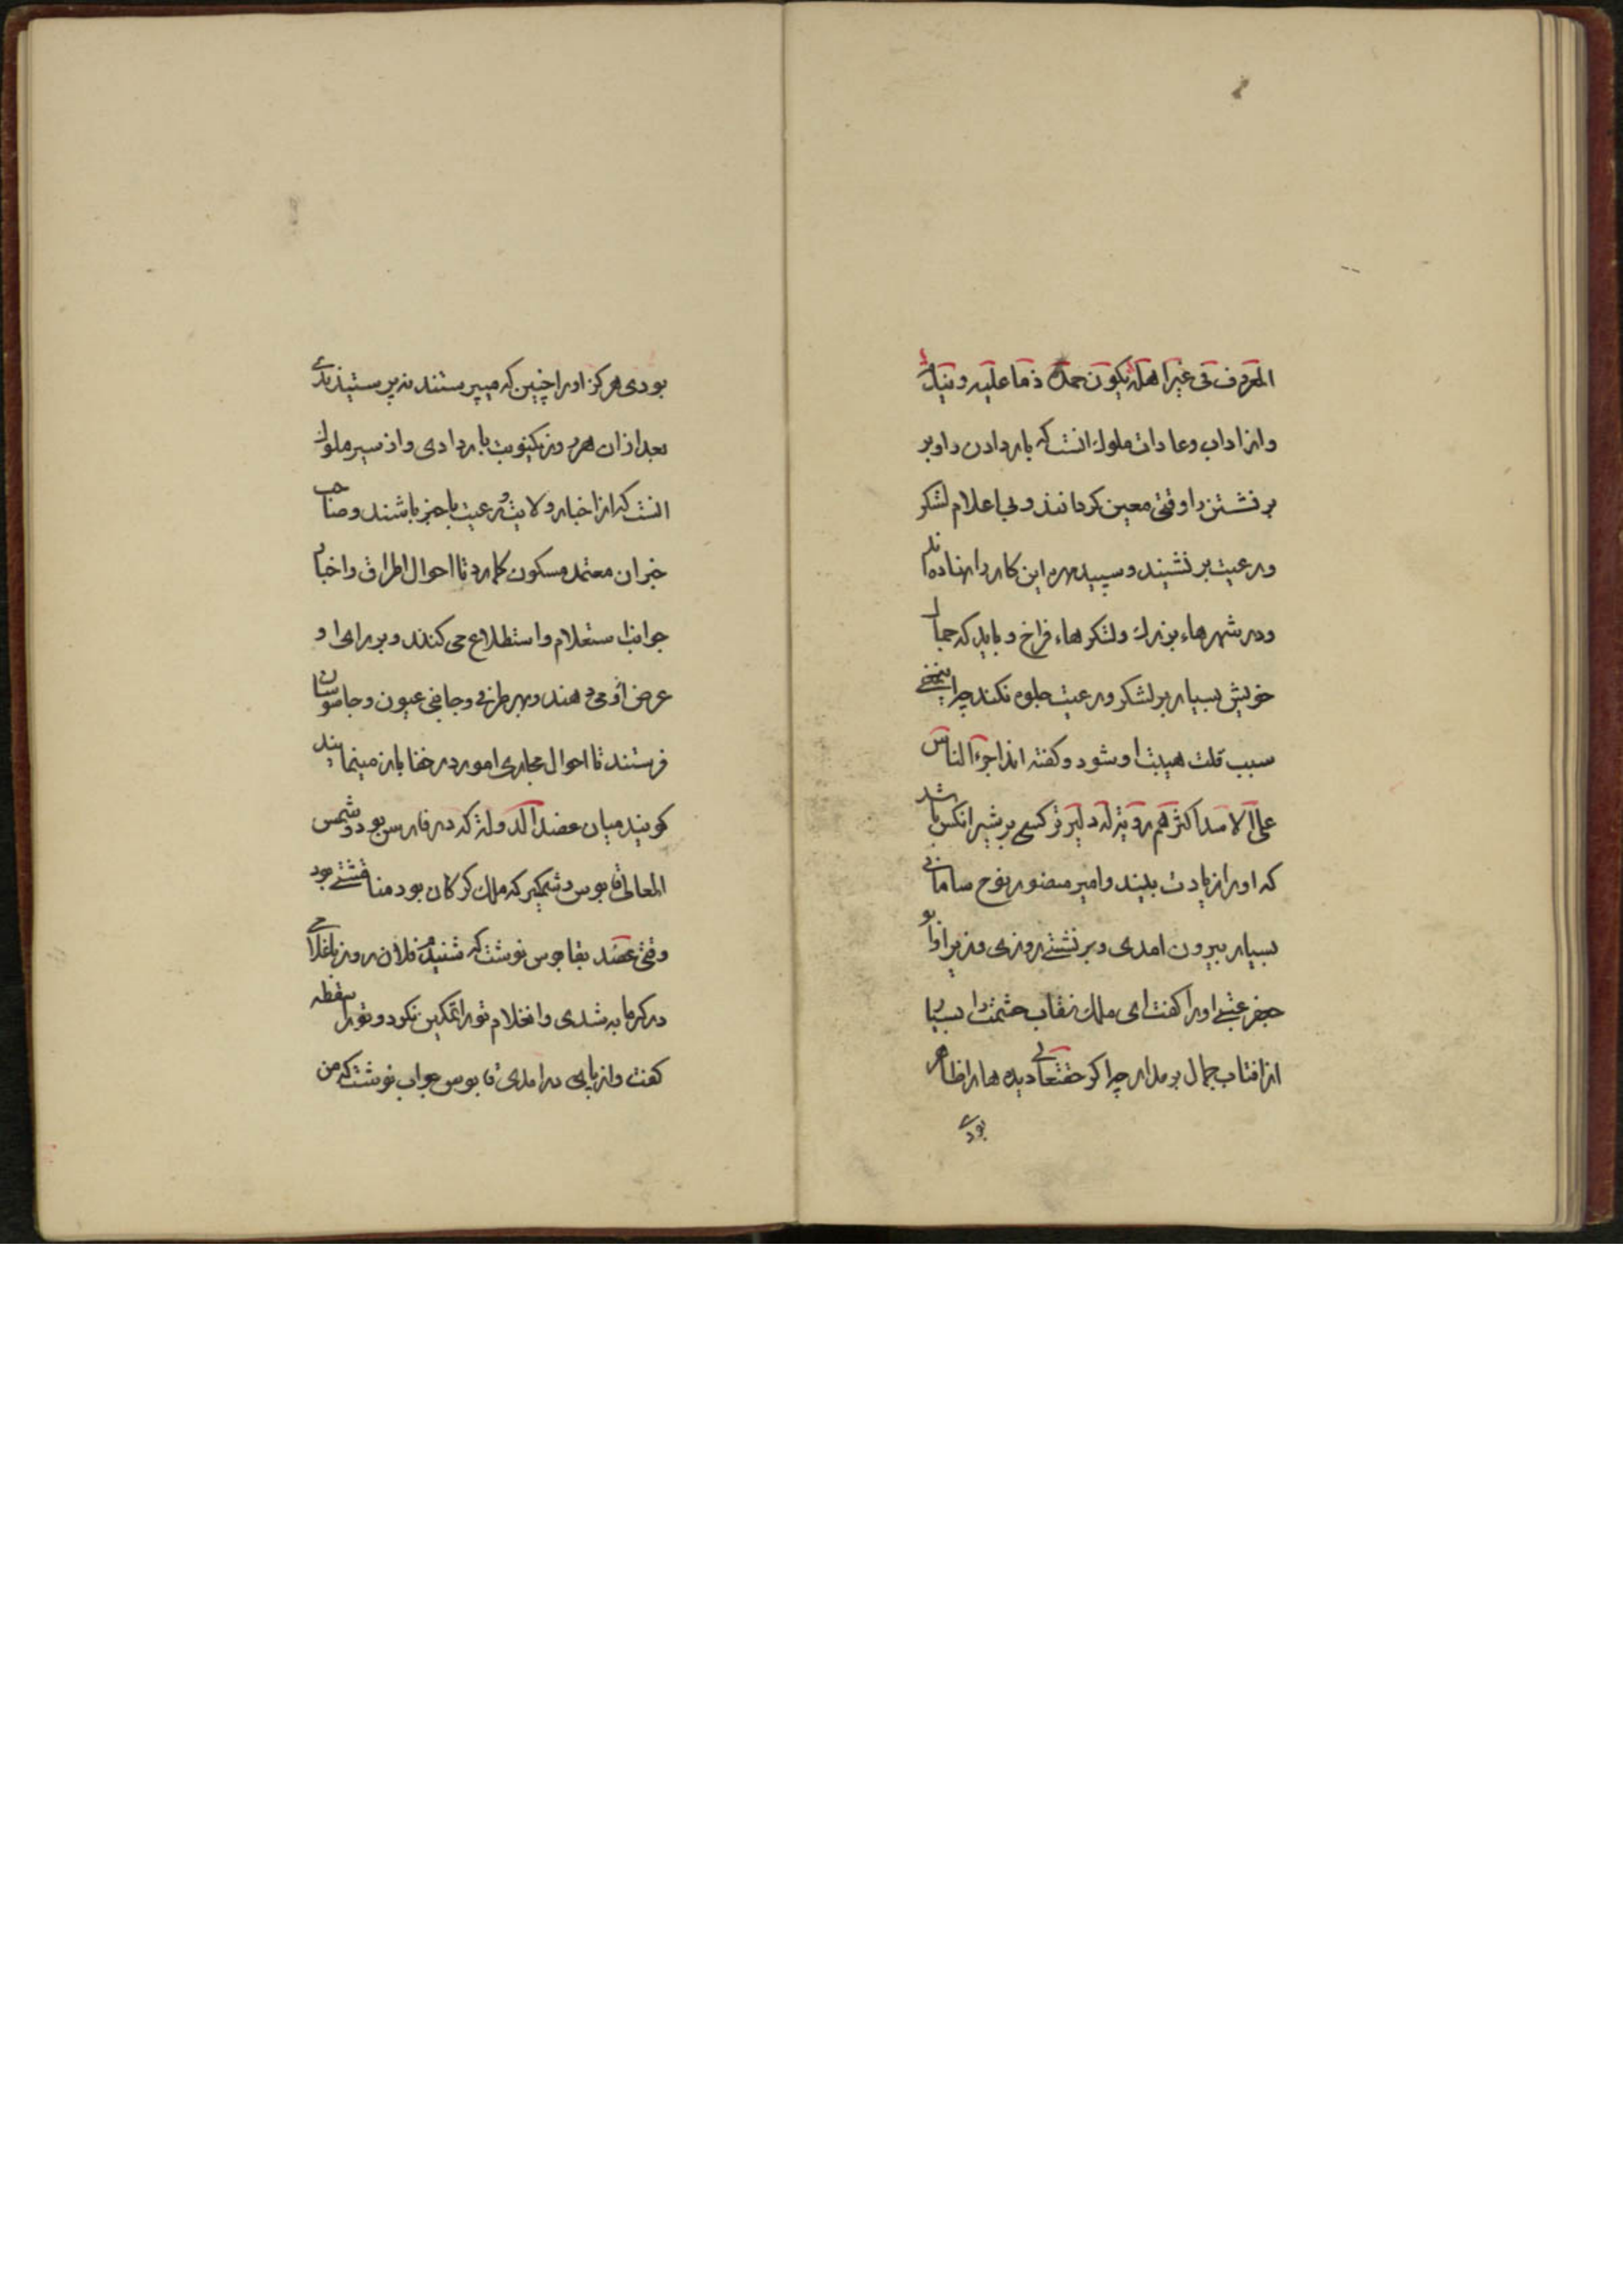 المعروف فی غیر اهله یکون حمده ذما علیه و
واز اداب وعادات ملوک انست که بار دادن را وبر
بر نشستن را وقتی معین کردانند وبی اعلام لشکر
ورعیت بر نشیند وسپیده این کار را نهاده اند
ودر شهرهاء بزرك ولشکرهاء فراخ وباید که جمال
خویش بسیار بر لشکر ورعیت جلوه نکند چرا
سبب قلت هیبت او شود وکفته اند اجرء الناس
علی الاسد اکثرهم رویة له دلیرتر کسی بر شیر انکس باشد
که او را زیادت بیند وامیر منصور نوح سامانی
بسیار بیرون امدی وبر نشستی روزی وزیر او ابو
جعفر عتبی او را کفت ای ملک نقاب حشمت را بسیار
از افتاب جمال بر مدار چرا کر حقتعالی دیده ها را ظاهر
بودی
بودی هرکز او را چنین که میپرستند نپرستیدندی
بعد از ان هر روز یکنوبت بار دادی واز سیر ملوك
انست که از اخبار ولایت ورعیت باخبر باشند وصاحب
خبران معتمد مسکون کمارد تا احوال اطراف واخبار
جوانب استعلام واستطلاع می کنند وبر رای او
عرض می دهند وبهر طرفی وجانبی عیون وجاسوسان
فرستند تا احوال مجاری امور در خفا باز مینمایند
کویند میان عضد الدوله که در فارس بود وشمس
المعالی قابوس وشمکیر که ملک کرکان بود منافستی بود
وقتی عضد بقابوس نوشت که شنیدم فلان روز باغلامی
در کرمابه شدی وانغلام تو را تمکین نکرد وتو را سقطه
کفت واز پای در امدی قابوس جواب نوشت که من